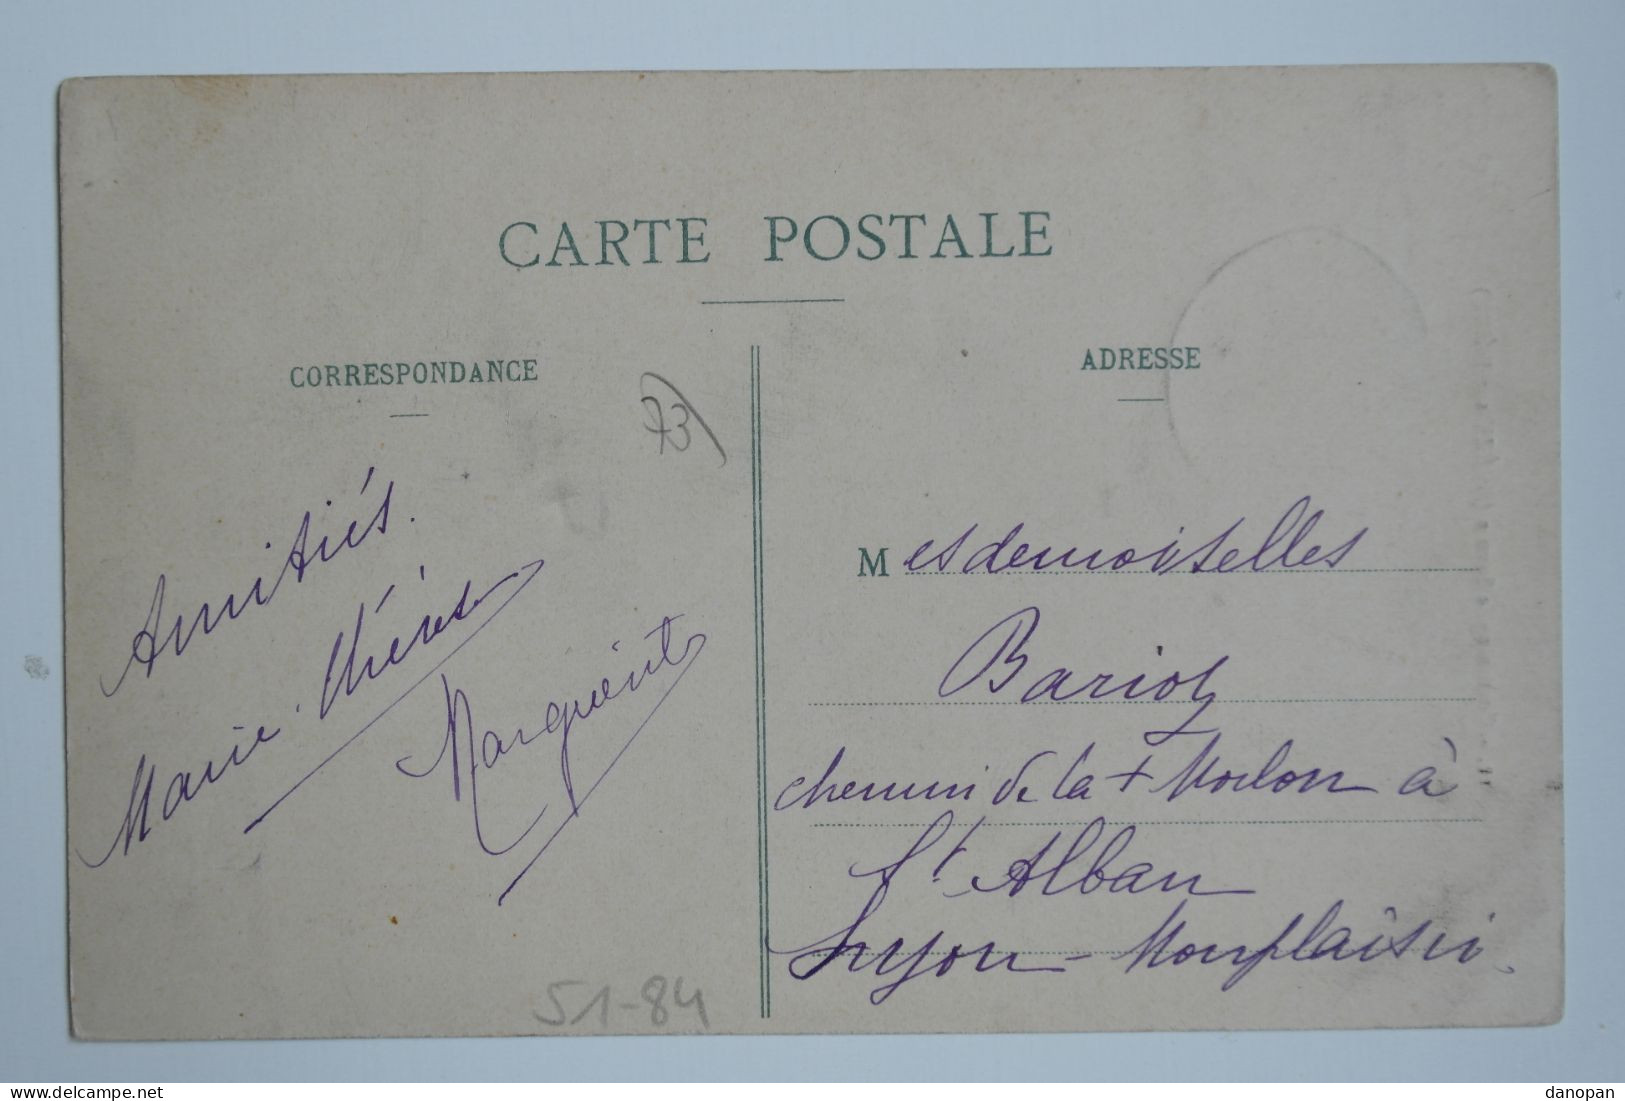 CARTE POSTALE
CORRESPONDANCE
73
Amitiés.
Marie Thérèse
Marguerite
51-84
ADRESSE
Mesdemoiselles
Bariot
chemin de la + Morlon à
St Alban
Lyon - Monplaisir
delcampe.net
danopan